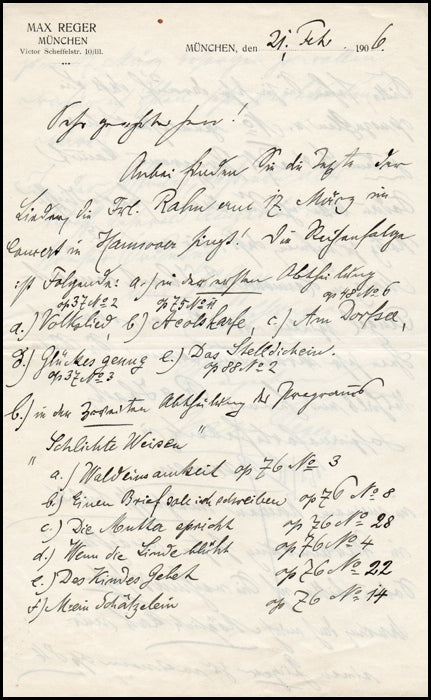 MAX REGER
MÜNCHEN
Victor Scheffelstr. 10/III.
MÜNCHEN, den 21. Febr. 1906.
Sehr geehrter Herr!
Anbei finden Sie die Texte der
Lieder, die Frl. Rahn am 17. März im
Concert in Hannover singt! Die Reihenfolge
ist Folgende: a.) in der ersten Abtheilung
op 37 No 2 op 75 No 11 op 48 No 6
a.) Volkslied, b.) Aeolsharfe, c.) Am Dorfsee,
d.) Glückes genug e.) Das Stelldichein.
op 37 No 3 op 88 No 2
b.) in der zweiten Abtheilung des Programms
"Schlichte Weisen"
a.) Waldeinsamkeit op 76 No 3
b.) Einen Brief soll ich schreiben op 76 No 8
c.) Die Mutter spricht op 76 No 28
d.) Wenn die Linde blüht op 76 No 4
e.) Des Kindes Gebet op 76 No 22
f.) Mein Schätzelein op 76 No 14